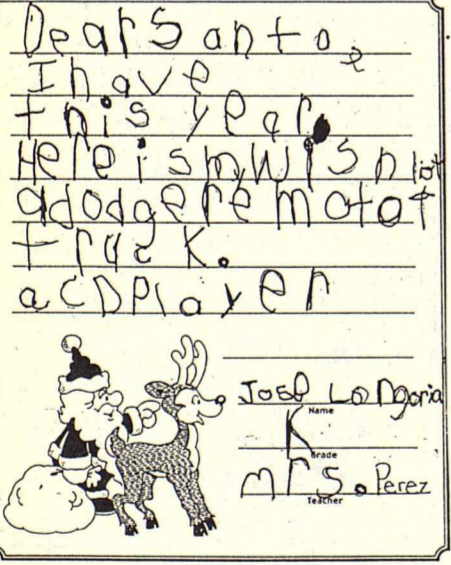 Dear Santa,
I have
this year.
Here is my wish list
a dodge remot
truck.
a CD Player
Jose Longoria
Name
K
Grade
mrs. Perez
Teacher